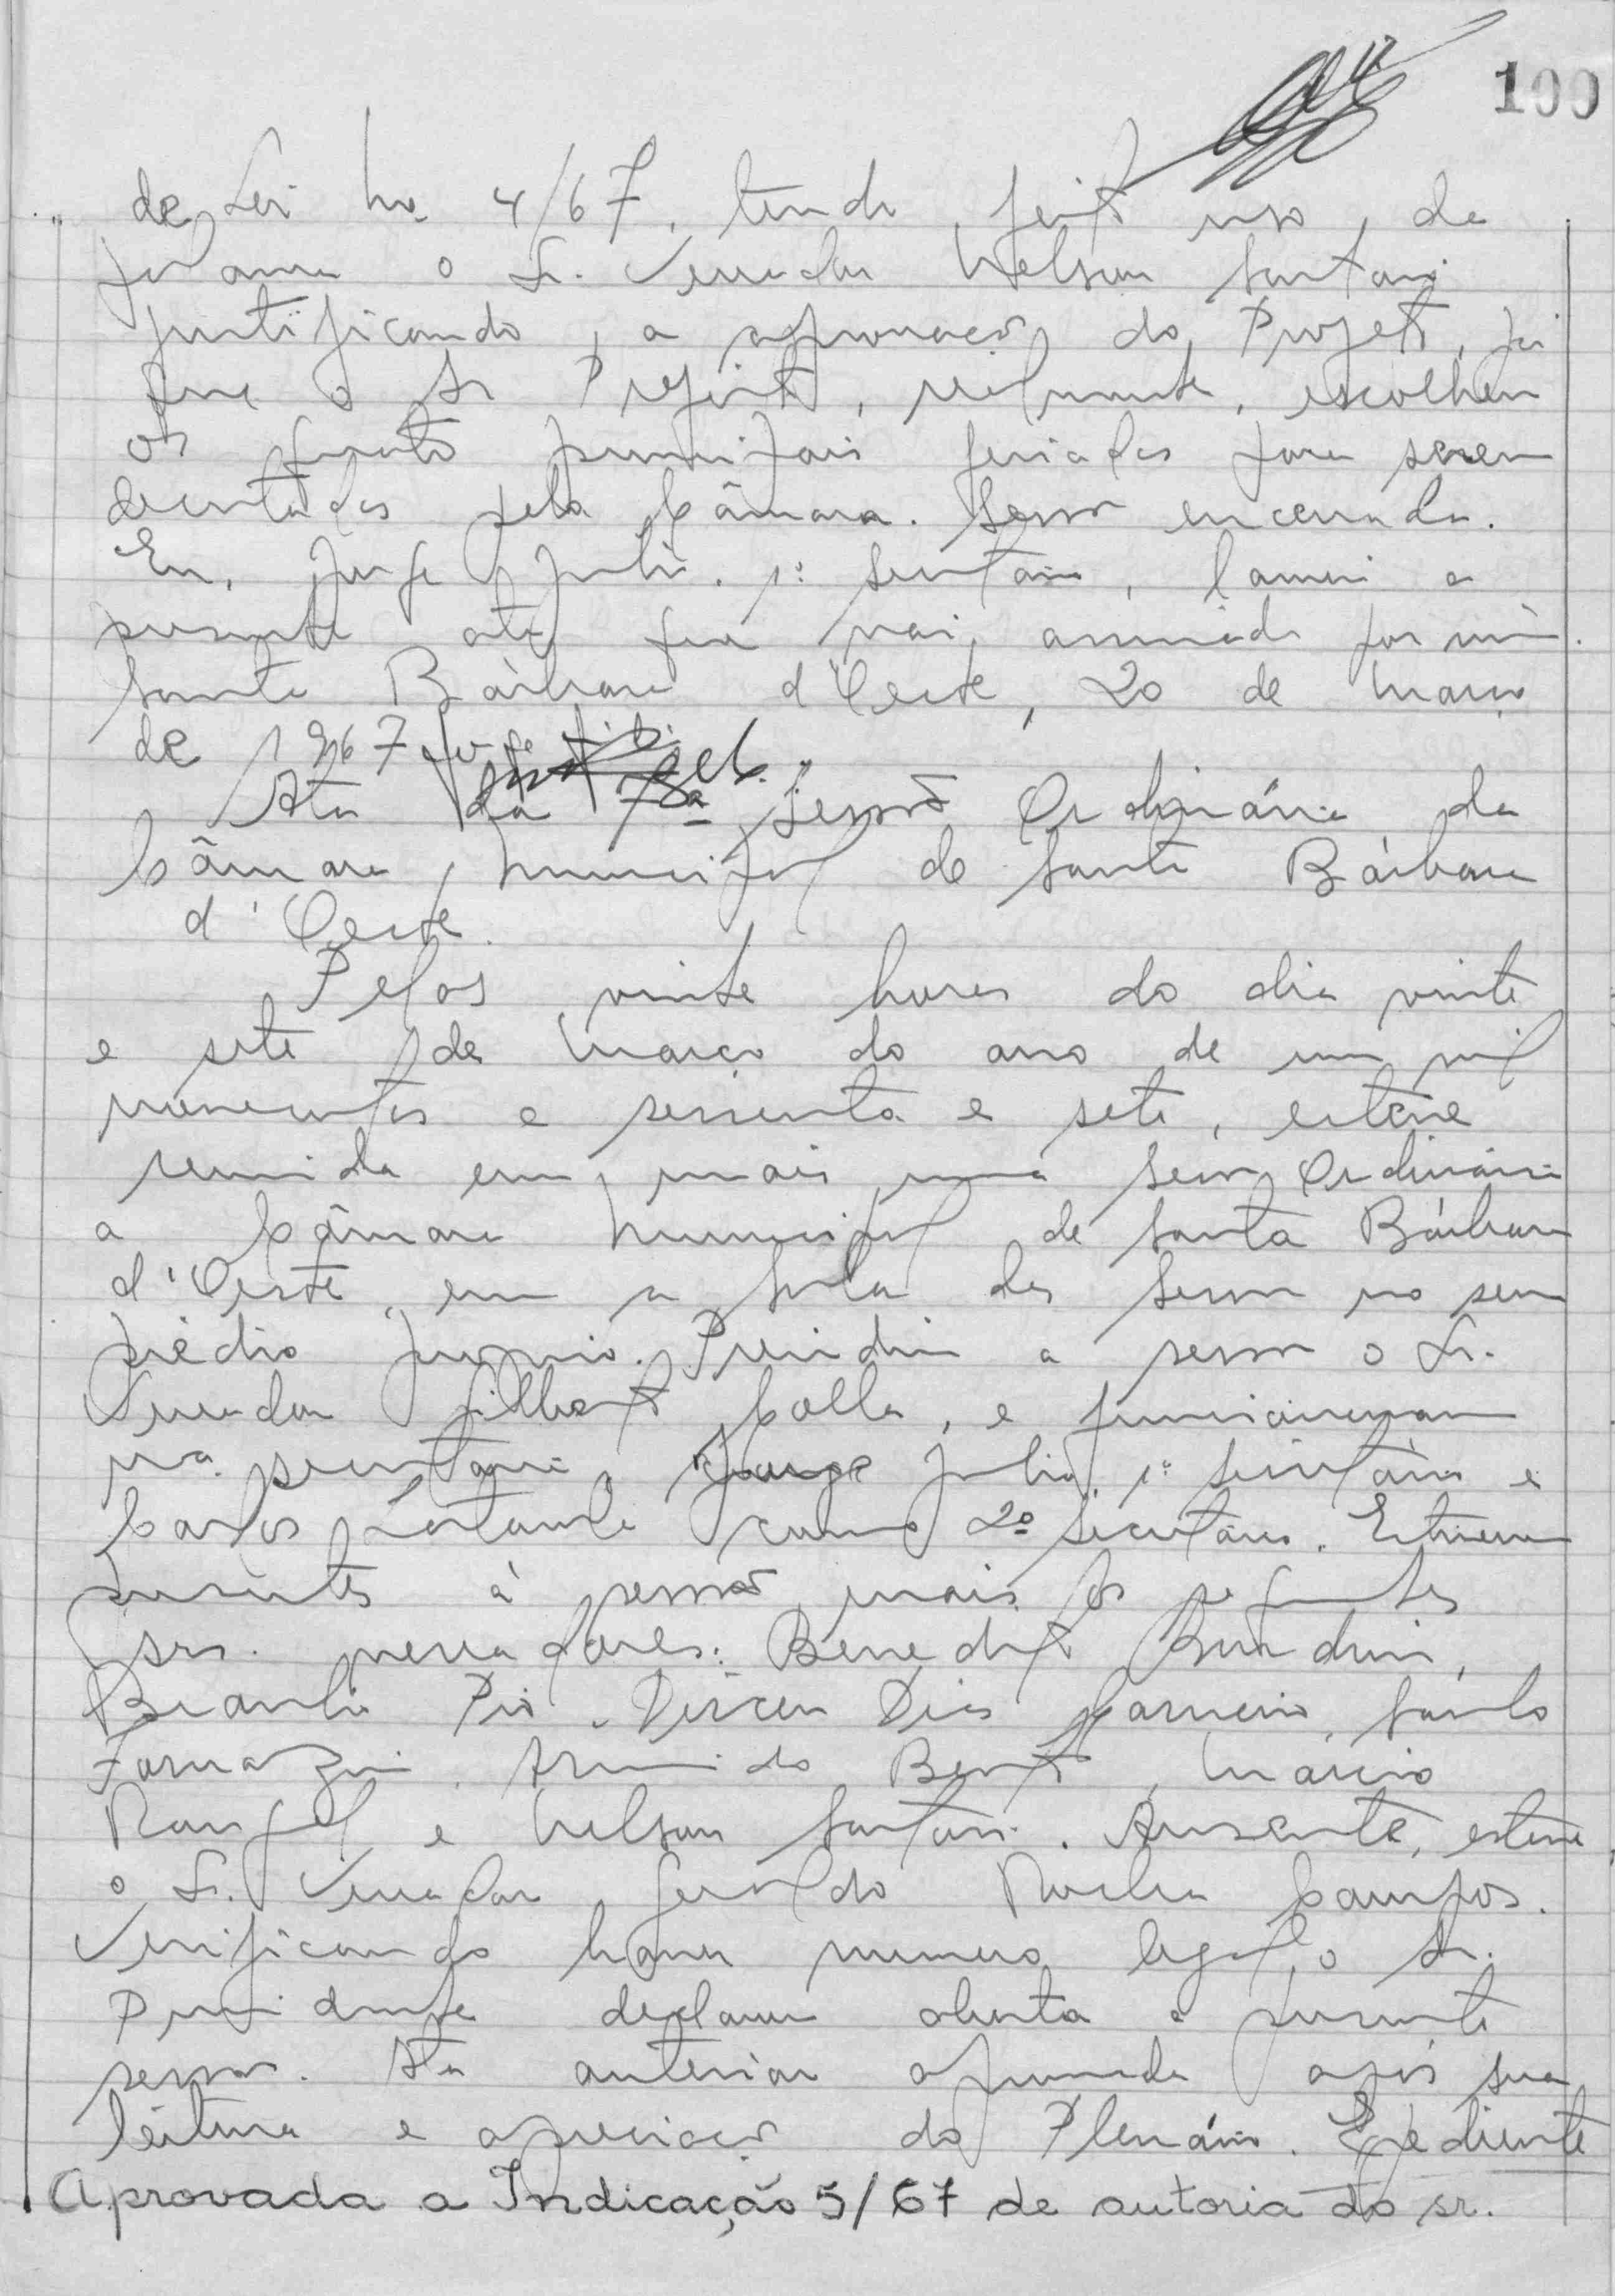 100
de Lei no 4/67, tendo feito uso da
palavra o Sr. Vereador Nelson Santari
justificando a aprovação do Projeto, foi
que o Sr Prefeito, escolheu
os quatro principais feriados para serem
decretados pela Câmara. Sessão encerrada.
Eu, Jorge Julio. 1º Secretário, lavrei a
presente ata que vai assinada por mim.
Santa Bárbara d'Oeste, 20 de Março
de 1967
Ata da 78ª Sessão Ordinária da
Câmara Municipal de Santa Bárbara
d'Oeste.
Pelas vinte horas do dia vinte
e sete de Março do ano de um mil
novecentos e sessenta e sete, esteve
reunida em mais uma Sessão Ordinária
a Câmara Municipal de Santa Bárbara
d'Oeste, em a Sala das Sessões no seu
prédio próprio. Presidiu a sessão o Sr.
Vereador Gilberto Calla, e funcionaram
na secretaria, Jorge Julio, 1º Secretário e
Carlos como 2º Secretário. Estiveram
presentes à sessão mais os seguintes
srs. vereadores: Benedito
Braulio Pio, Dirceu Dias Carneiro, Santo
Farnazin, Armindo Bento, Márcio
Rangel e Nelson Santari. Ausente, esteve
o Sr. Vereador Geraldo Rocha Campos.
Verificando haver numero legal o Sr.
Presidente declarou aberta a presente
sessão. Ata anterior aprovada após sua
leitura e apreciação do Plenário. Expediente
Aprovada a Indicação 5/67 de autoria do sr.